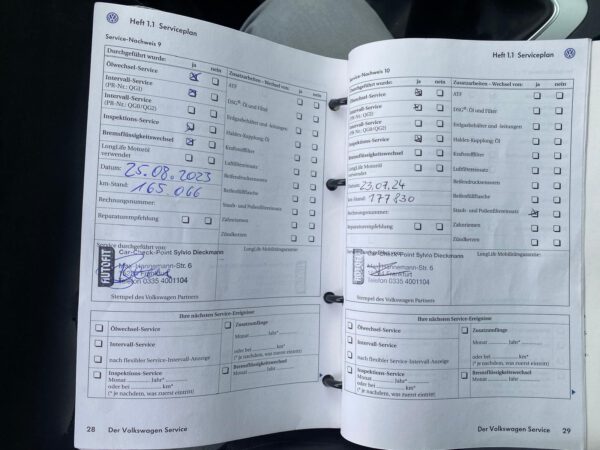 Heft 1.1 Serviceplan
Service-Nachweis 9
Durchgeführt wurde: ja nein
Ölwechsel-Service
Intervall-Service
(PR-Nr.: QG1)
Intervall-Service
(PR-Nr.: QG0/QG2)
Inspektions-Service
Bremsflüssigkeitswechsel
LongLife Motoröl
verwendet
Datum: 25.08.2023
km-Stand: 165 066
Rechnungsnummer:
Reparaturempfehlung
Zusatzarbeiten - Wechsel von: ja nein
ATF
DSG®-Öl und Filter
Erdgasbehälter und -leitungen
Haldex-Kupplung Öl
Kraftstofffilter
Luftfiltereinsatz
Reifendrucksensoren
Reifenfüllflasche
Staub- und Pollenfiltereinsatz
Zahnriemen
Zündkerzen
Service durchgeführt von:
LongLife-Mobilitätsgarantie:
AUTOFIT
Car-Check-Point Sylvio Dieckmann
Max-Hannemann-Str. 6
Frankfurt
Telefon 0335 4001104
Stempel des Volkswagen Partners
Ihre nächsten Service-Ereignisse
Ölwechsel-Service
Intervall-Service
nach flexibler Service-Intervall-Anzeige
Inspektions-Service
Monat Jahr*
oder bei km*
(* je nachdem, was zuerst eintritt)
Zusatzumfänge
Monat Jahr*
oder bei km*
(* je nachdem, was zuerst eintritt)
Bremsflüssigkeitswechsel
Monat Jahr
28 Der Volkswagen Service
Heft 1.1 Serviceplan
Service-Nachweis 10
Durchgeführt wurde: ja nein
Ölwechsel-Service
Intervall-Service
(PR-Nr.: QG1)
Intervall-Service
(PR-Nr.: QG0/QG2)
Inspektions-Service
Bremsflüssigkeitswechsel
LongLife Motoröl
verwendet
Datum: 23.07.24
km-Stand: 177 830
Rechnungsnummer:
Reparaturempfehlung
Zusatzarbeiten - Wechsel von: ja nein
ATF
DSG®-Öl und Filter
Erdgasbehälter und -leitungen
Haldex-Kupplung Öl
Kraftstofffilter
Luftfiltereinsatz
Reifendrucksensoren
Reifenfüllflasche
Staub- und Pollenfiltereinsatz
Zahnriemen
Zündkerzen
Service durchgeführt von:
LongLife-Mobilitätsgarantie:
AUTOFIT
Car-Check-Point Sylvio Dieckmann
Max-Hannemann-Str. 6
Frankfurt
Telefon 0335 4001104
Stempel des Volkswagen Partners
Ihre nächsten Service-Ereignisse
Ölwechsel-Service
Intervall-Service
nach flexibler Service-Intervall-Anzeige
Inspektions-Service
Monat Jahr*
oder bei km*
(* je nachdem, was zuerst eintritt)
Zusatzumfänge
Monat Jahr*
oder bei km*
(* je nachdem, was zuerst eintritt)
Bremsflüssigkeitswechsel
Monat Jahr
Der Volkswagen Service 29